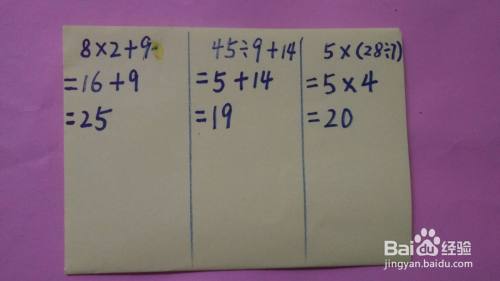 8×2+9
=16+9
=25
45÷9+14
=5+14
=19
5×(28÷7)
=5×4
=20
Baidu 经验
jingyan.baidu.com